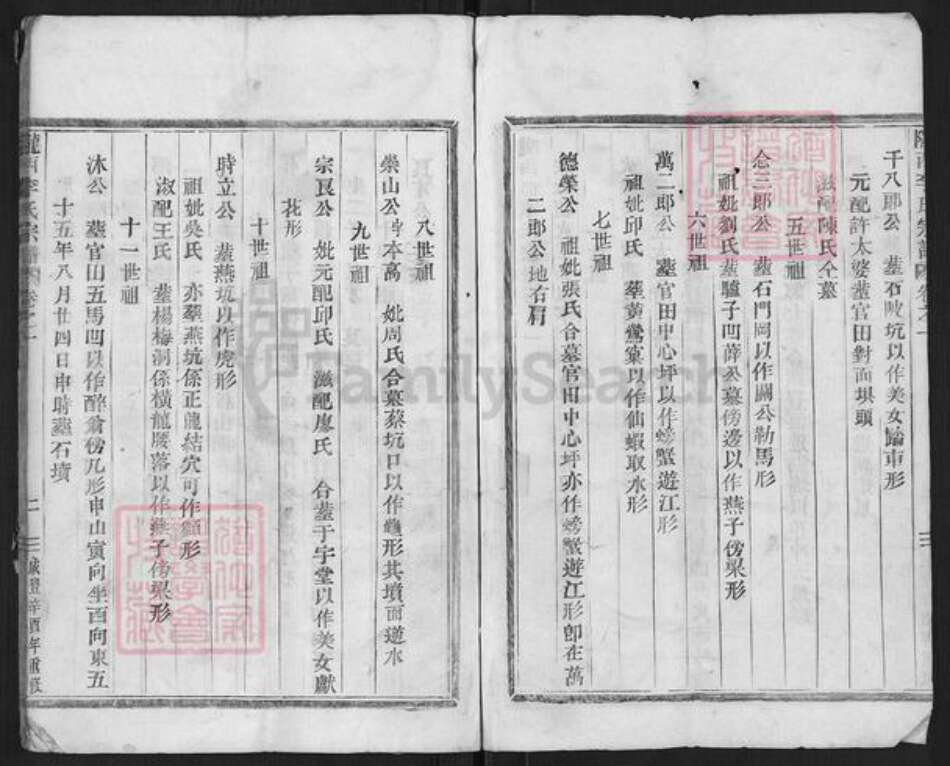 千八郎公 葬石陂坑以作美女踰車形
元配許太婆葬官田對面垻頭
滋配陳氏仝墓
五世祖
念三郎公 葬石門岡以作關公勒馬形
祖妣劉氏葬驢子凹薛公墓傍邊以作燕子傍梁形
六世祖
萬二郎公 葬官田中心坪以作螃蟹遊江形
祖妣邱氏 葬黃鶯窠以作仙蝦取水形
七世祖
德榮公 祖妣張氏合墓官田中心坪亦作螃蟹遊江形卽在萬
二郎公地右
八世祖
崇山公 本高 妣周氏合墓蔡坑口以作龜形其墳面逆水
九世祖
宗良公 妣元配邱氏 滋配廖氏 合葬于宇堂以作美女獻
花形
十世祖
時立公 葬燕坑以作虎形
祖妣吳氏 亦葬燕坑係正龍結穴可作 形
淑配王氏 葬楊梅洞係橫龍腰落以作燕子傍梁形
十一世祖
沐公 葬官田五馬凹以作醉翁傍几形申山寅向坐酉向東五
十五年八月廿四日申時葬石墳
隴西李氏宗譜 卷之一
二
咸豐辛酉年重修
FamilySearch